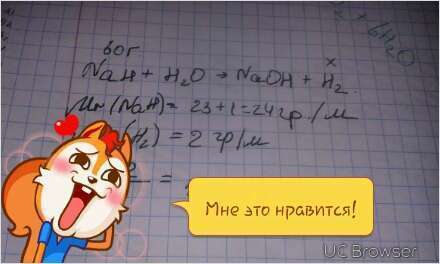 60г x
NaH + H₂O → NaOH + H₂.
Mr(NaH) = 23+1=24 гр/м
(H₂) = 2 гр/м
=
+6H₂O
Мне это нравится!
UC Browser